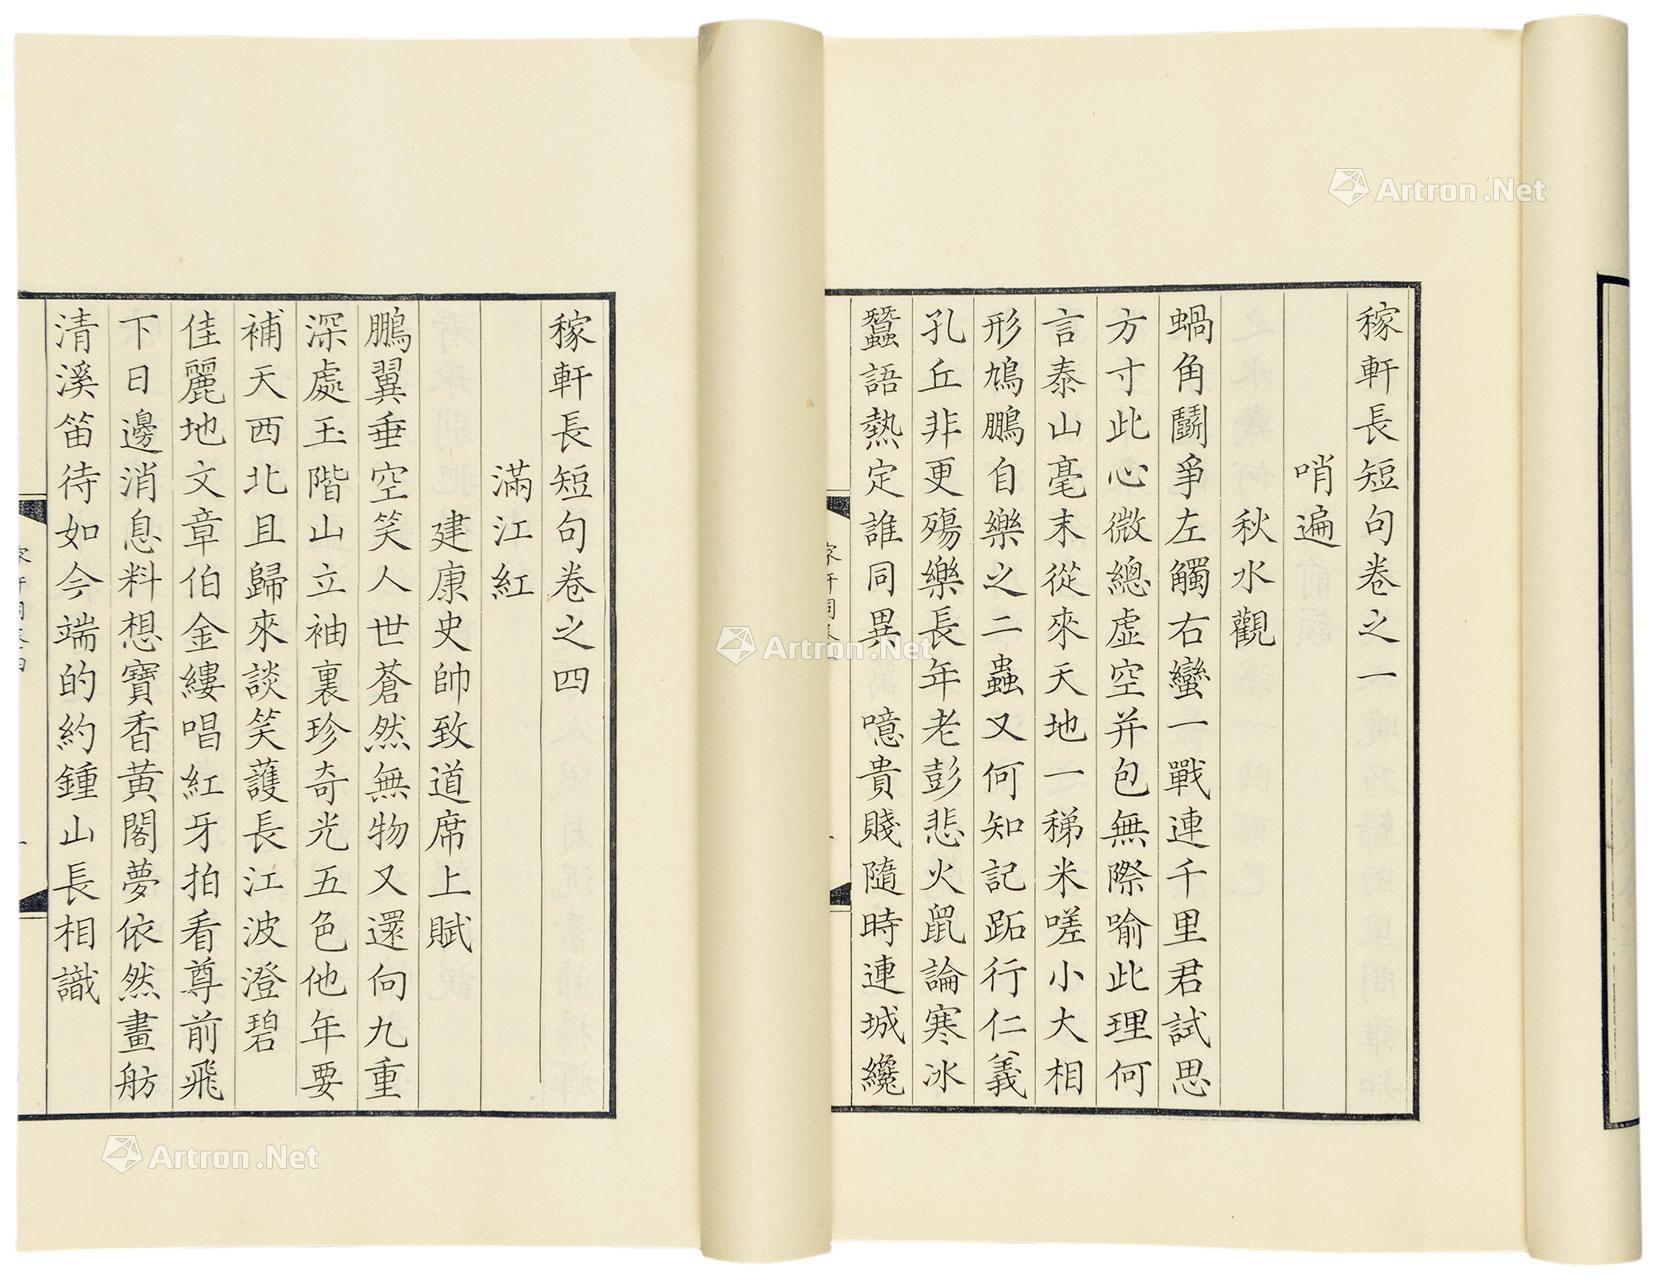 稼軒長短句卷之一
哨遍
秋水觀
蝸角鬬爭左觸右蠻一戰連千里君試思
方寸此心微總虛空并包無際喻此理何
言泰山毫末從來天地一稊米嗟小大相
形鳩鵬自樂之二蟲又何知記跖行仁義
孔丘非更殤樂長年老彭悲火鼠論寒冰
蠶語熱定誰同異 噫貴賤隨時連城纔
稼軒長短句卷之四
滿江紅
建康史帥致道席上賦
鵬翼垂空笑人世蒼然無物又還向九重
深處玉階山立袖裏珍奇光五色他年要
補天西北且歸來談笑護長江波澄碧
佳麗地文章伯金縷唱紅牙拍看尊前飛
下日邊消息料想寶香黃閣夢依然畫舫
清溪笛待如今端的約鍾山長相識
Artron.Net
Artron.Net
Artron.Net